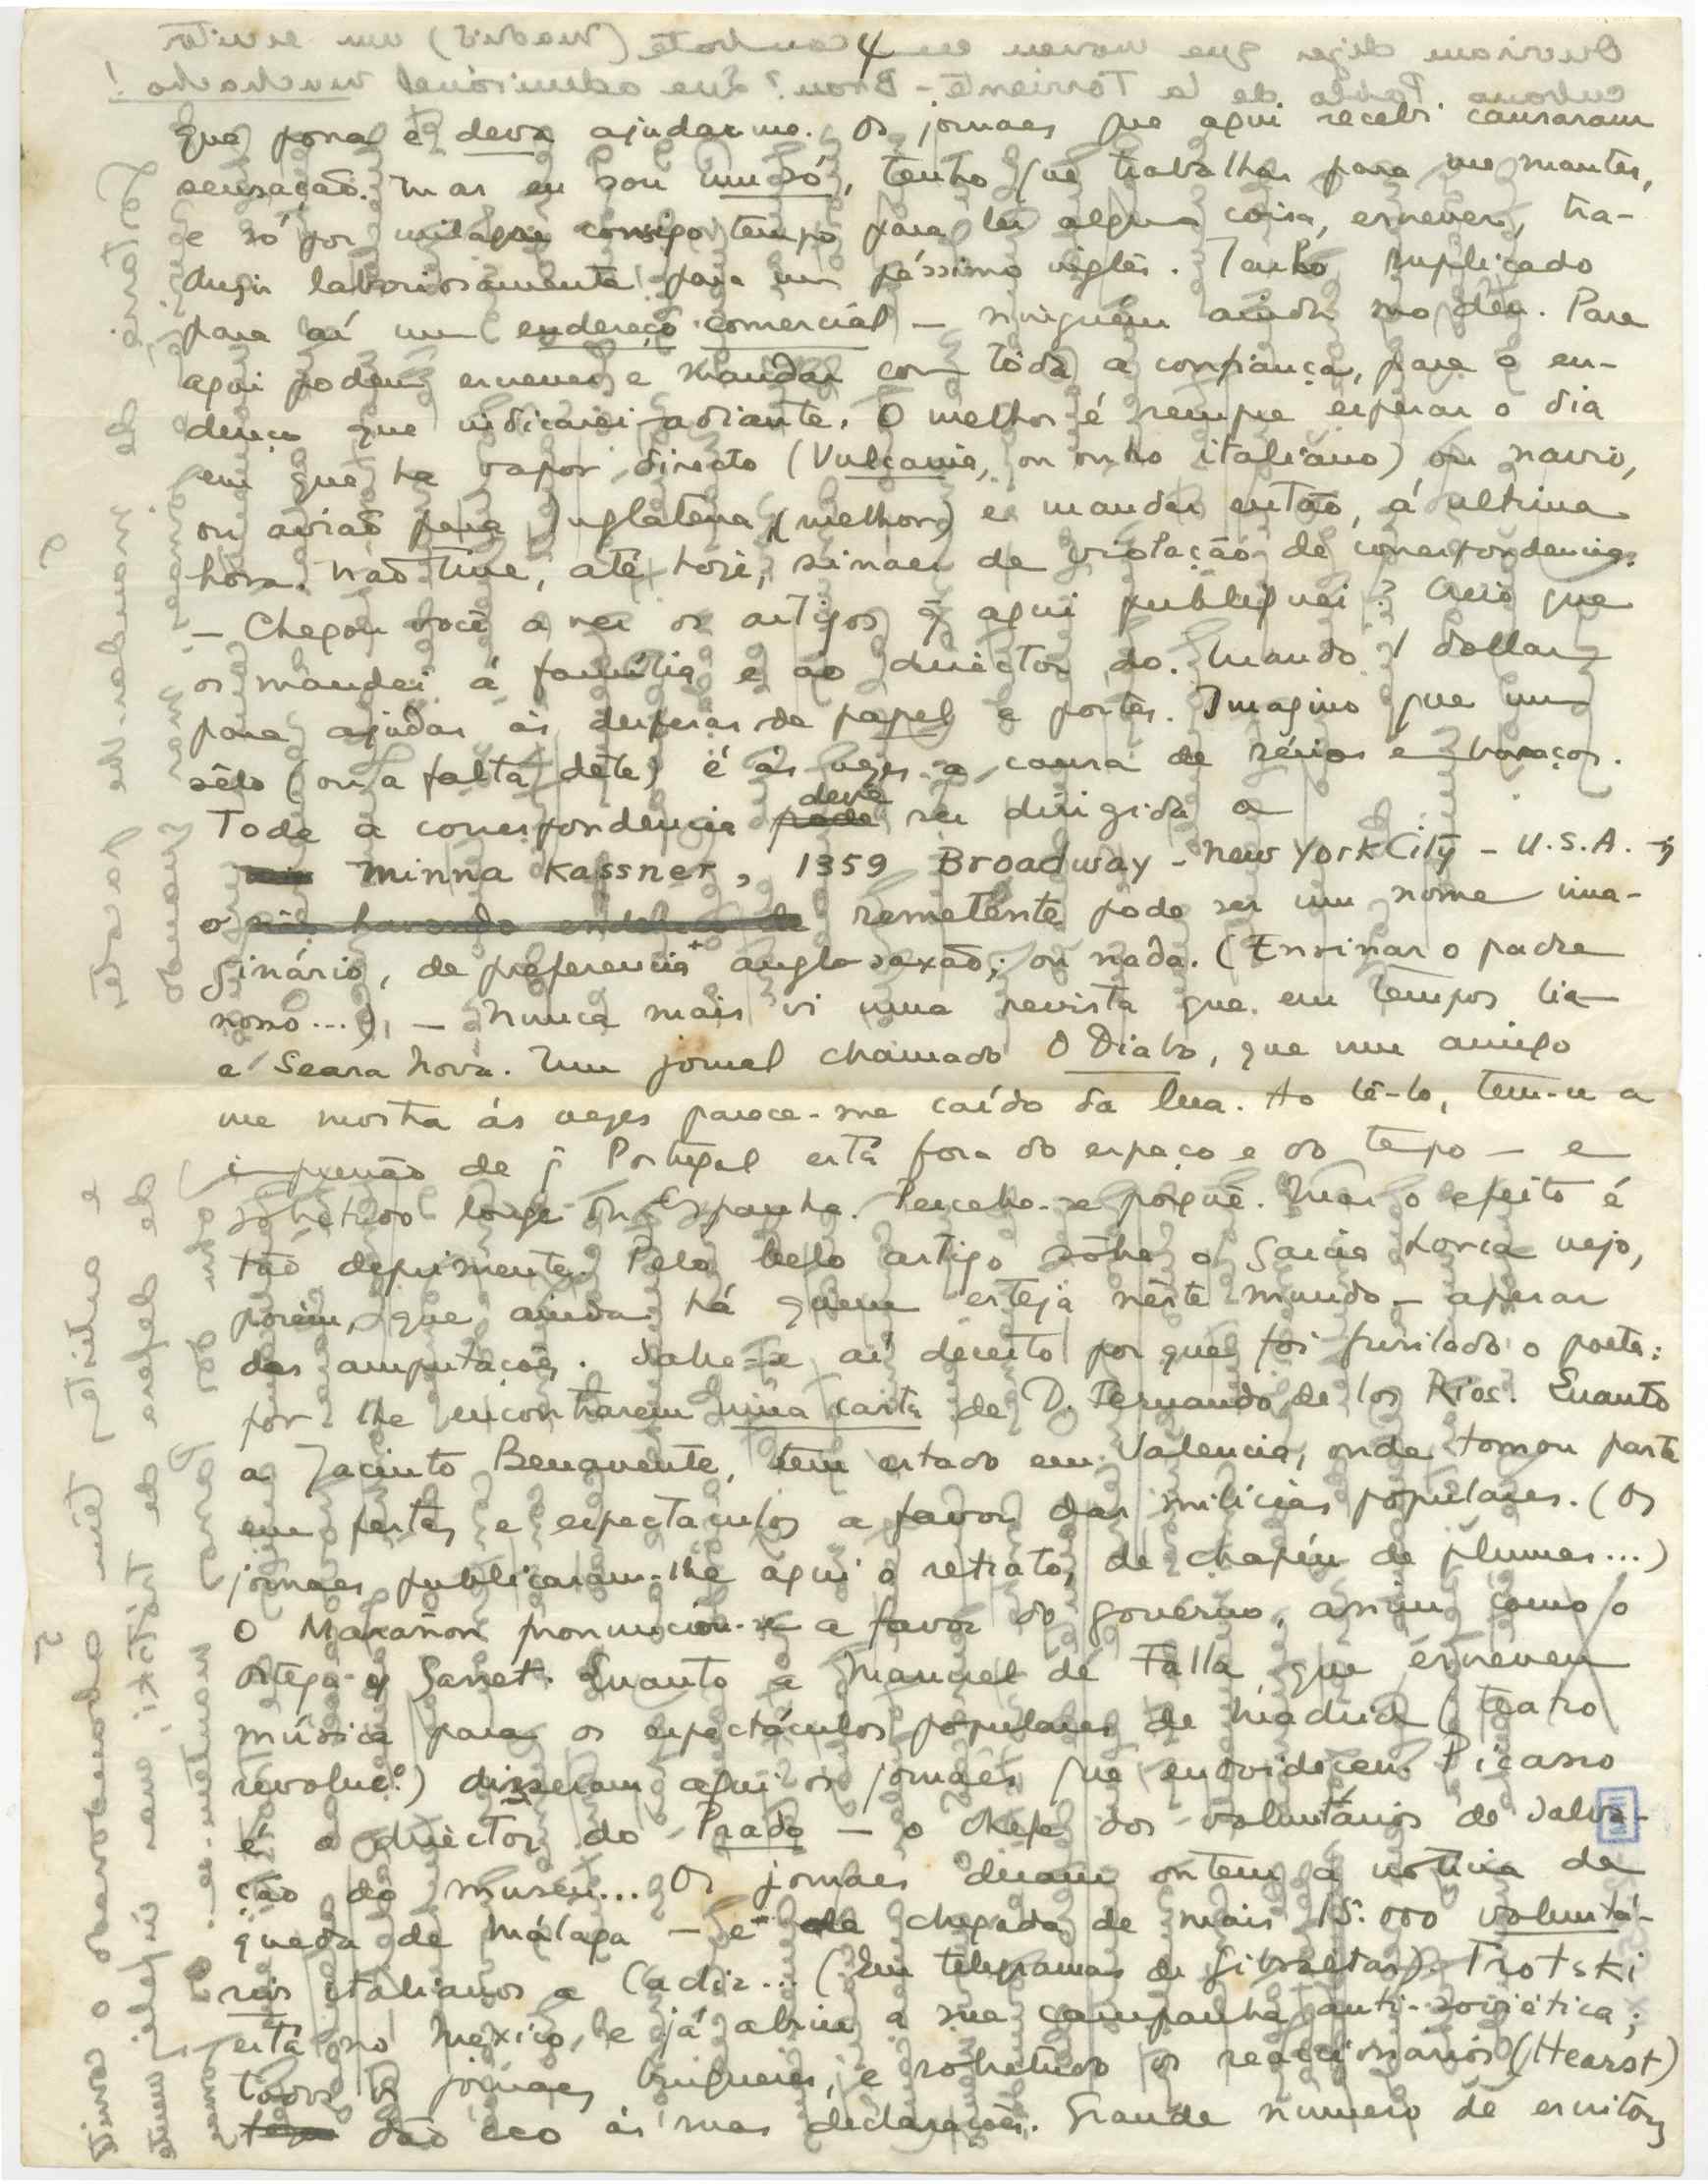 4
que possa e deva ajudar-me. Os jornaes que aqui recebi causaram
sensação. Mas eu sou um só, tenho que trabalhar para me manter,
e só por milagre consigo tempo para ler alguma coisa, escrever, tra-
duzir laboriosamente para um péssimo inglês. Tenho suplicado
para aí um endereço comercial — ninguém ainda mo deu. Para
aqui podem escrever e mandar com tôda a confiança, para o en-
dereço que indicarei adiante. O melhor é sempre esperar o dia
em que ha vapor directo (Vulcania, ou outro italiano) ou navio,
ou avião para Inglaterra (melhor) e mandar então, á ultima
hora. Não tive, até hoje, sinaes de violação de correspondencia.
— Chegou você a ver os artigos q̃ aqui publiquei? Creio que
os mandei á família e ao director do. Mando 1 dollar
para ajudar ás despesas de papel e portes. Imagino que um
sêlo (ou a falta dêle) é ás vezes a causa de sérios embaraços.
Toda a correspondencia pode deve ser dirigida a
Minna Kassner, 1359 Broadway - New York City - U.S.A. -,
o remetente pode ser um nome ima-
ginário, de preferencia anglo-saxão; ou nada. (Ensinar o padre
nosso...). — Nunca mais vi uma revista que em tempos lia
a Seara Nova. Um jornal chamado O Diabo, que um amigo
me mostra ás vezes parece-me caído da lua. Ao lê-lo, tem-se a
impressão de q̃ Portugal está fora do espaço e do tempo — e
sobretudo longe da Espanha. Percebe-se porquê. Mas o efeito é
tão deprimente. Pelo belo artigo sôbre o Garcia Lorca vejo,
porém, que ainda há quem esteja nêste mundo — apesar
das amputações. Sabe-se aí decerto por que foi fusilado o poeta:
por lhe encontrarem uma carta de D. Fernando de los Rios. Quanto
a Jacinto Benavente, tem estado em Valencia, onde tomou parte
em festas e espectaculos a favor das milicias populares. (Os
jornaes publicaram-lhe aqui o retrato, de chapéu de plumas...)
O Marañon pronunciou-se a favor do governo, assim como o
Ortega y Gasset. Quanto a Manuel de Falla que escreveu
música para os espectáculos populares de Madrid (teatro
revoluc.º) disseram aqui os jornaes que enlouqueceu. Picasso
é o director do Prado — o chefe dos voluntários de salva-
ção do museu... Os jornaes deram ontem a noticia da
queda de Málaga — e da chegada de mais 15.000 voluntá-
rios italianos a Cadiz... (Em telegramas de Gibraltar). Trotski
está no Mexico, e já abriu a sua campanha anti-soviética;
todos os jornaes burgueses, e sobretudo os reaccionarios (Hearst)
dão eco ás suas declarações. Grande número de escritores